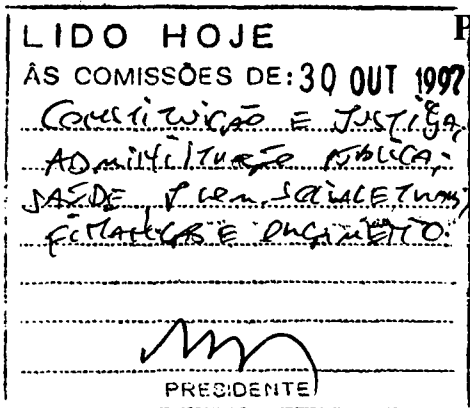 LIDO HOJE
ÀS COMISSÕES DE: 30 OUT 1997
CONSTITUIÇÃO E JUSTIÇA,
ADMINISTRAÇÃO PÚBLICA,
SAÚDE, E
FINANÇAS E ORÇAMENTO.
PRESIDENTE
P